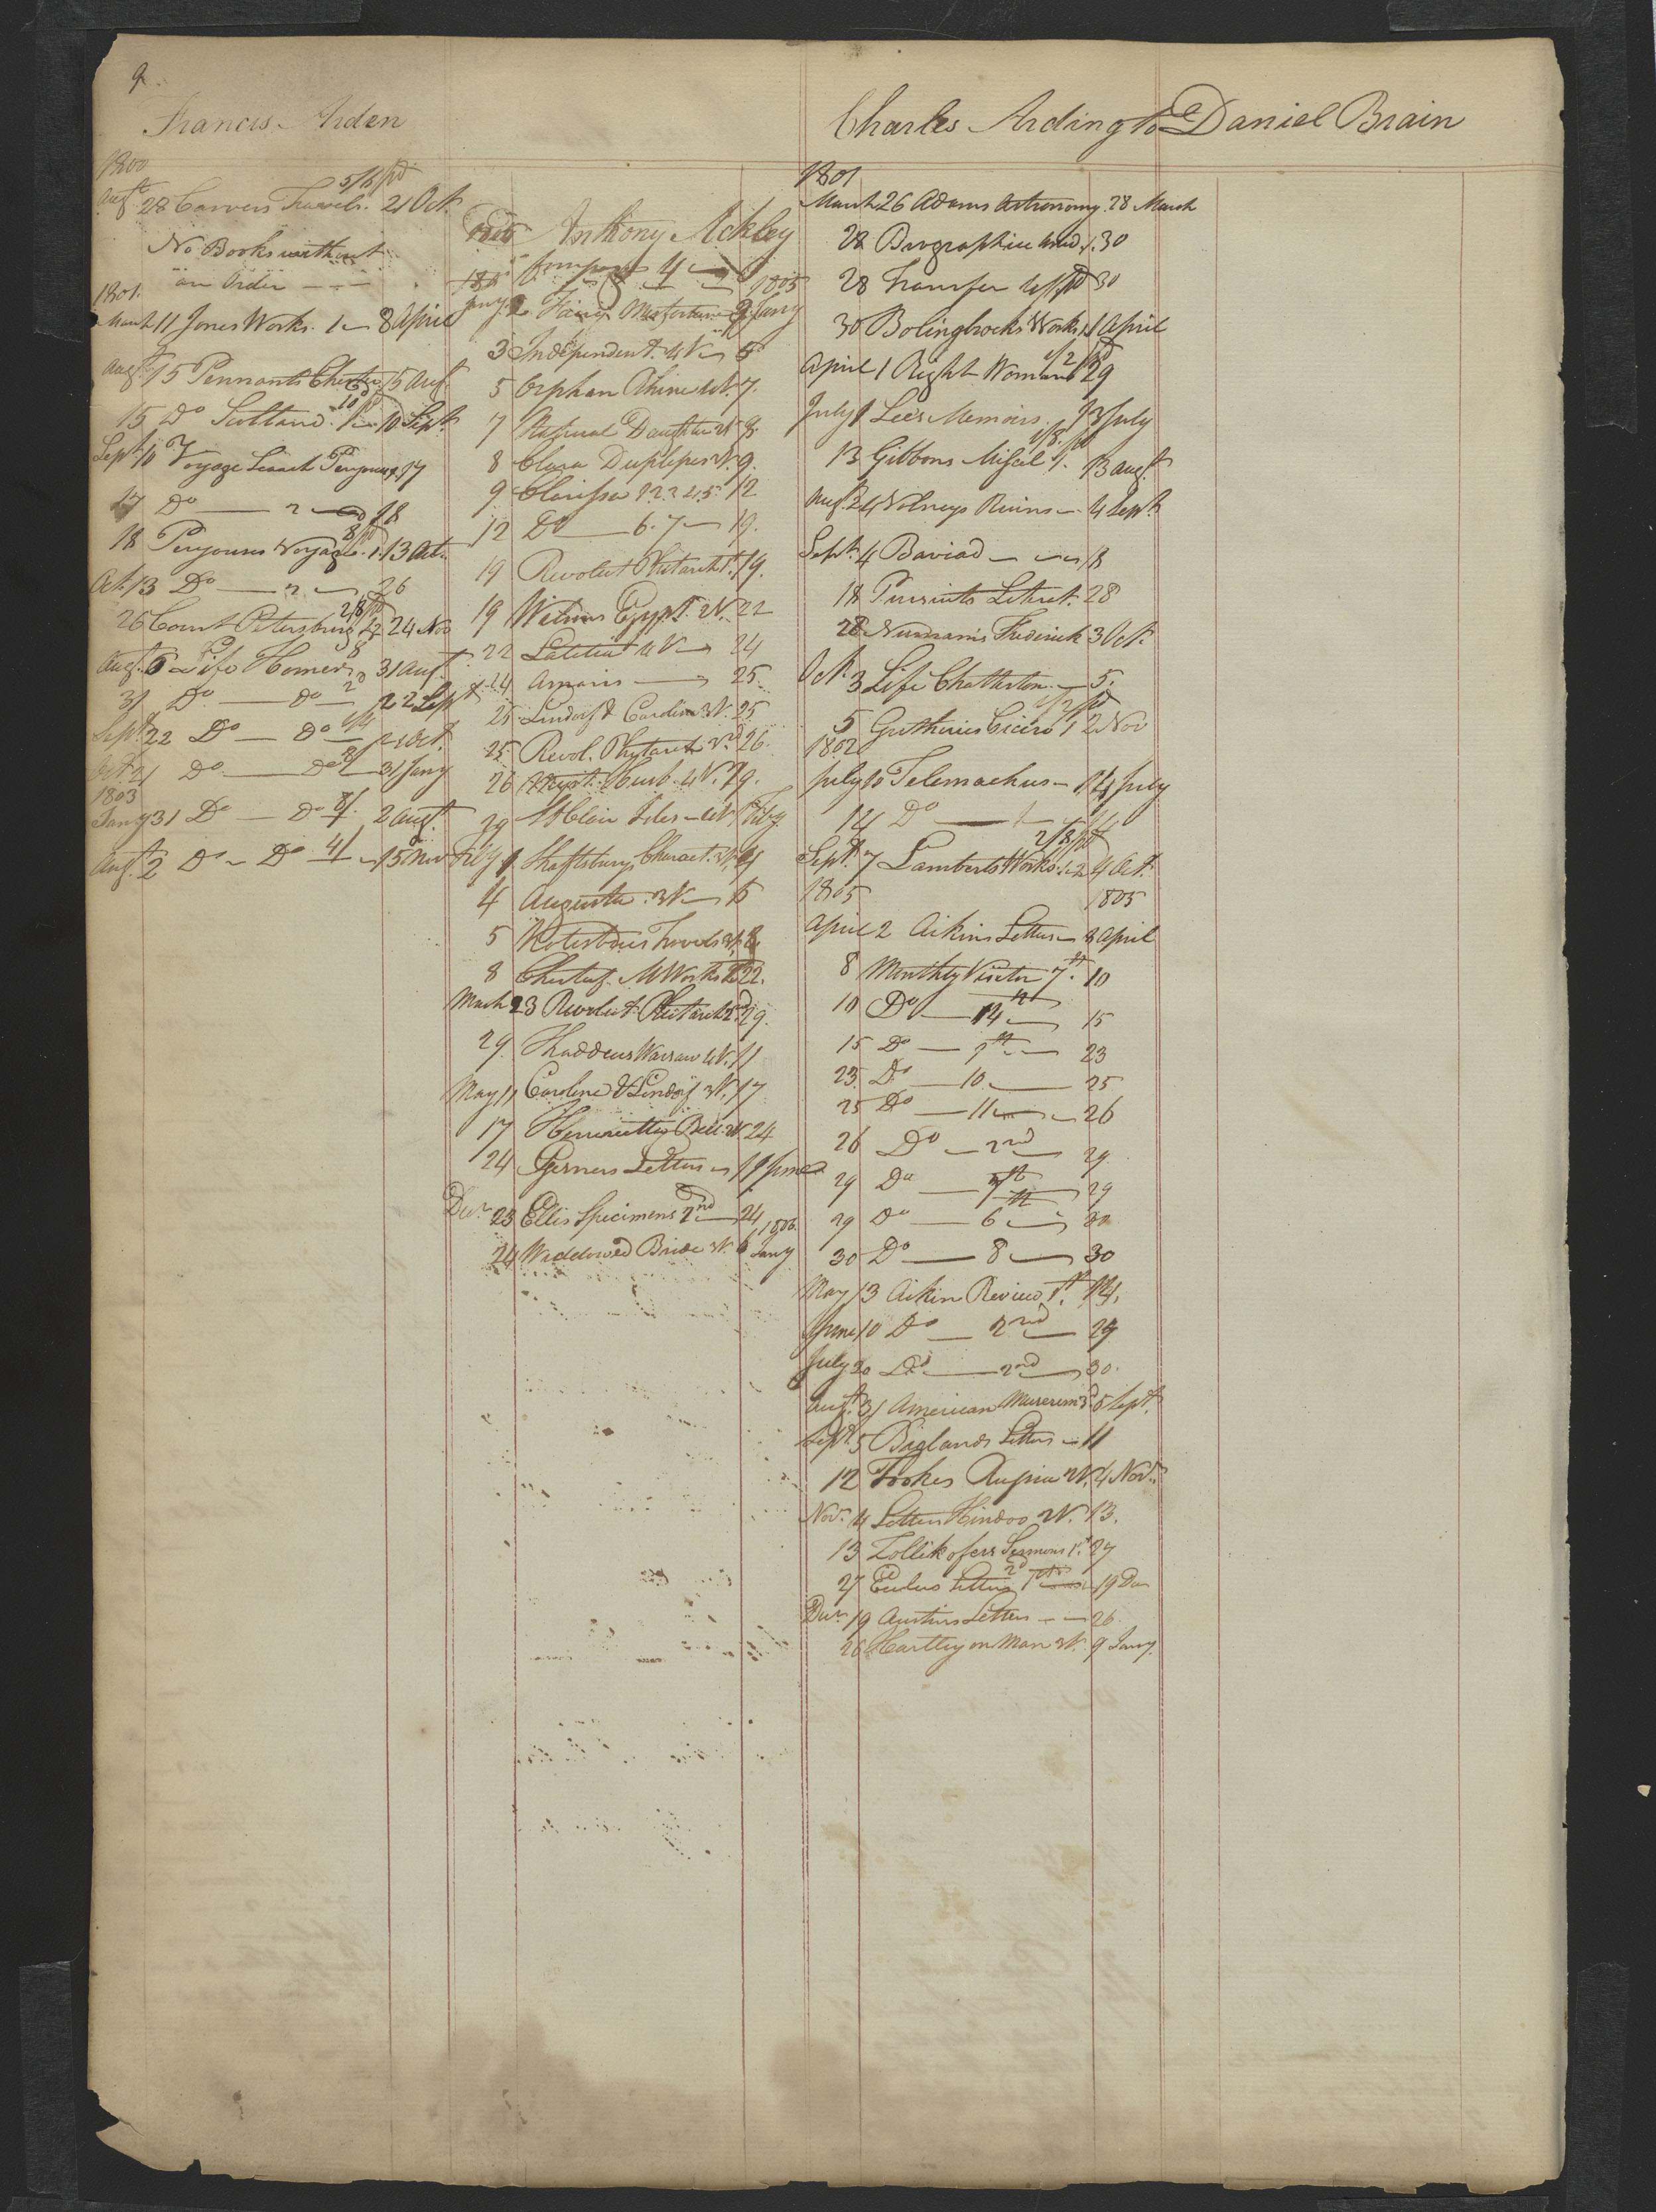 9
Francis Arden
1800
Augt 28 Carvers Travels. 5/6 pd 21 Oct.
No Books without
an Order
1801.
March 11 Jones Works. 1 8 April
Augt 15 Pennants Chester 15 Augt
15 Do Scotland 10 Sept
Sept 10 Voyage Search Perouse 1. 17
17 Do 2 18
18 Perouses Voyage. 1. 13 Oct
Oct. 13 Do 2 26
26 Court Petersburg 2/8 pd 24 Nov
Augt 6 Life Homer 31 Augt
31 Do Do 2 22 Sept
Sept 22 Do Do 21 Oct.
Oct. 21 Do Do 31 Jany
1803
Jany 31 Do Do 8/. 2 Augt
Augt 2 Do Do 4/ 15 Nov
Anthony Ackley
1805
Jany 2 Fairy Misfortune 3 Jany
3 Independent. 2V 5
5 Orphan Rhine 4V. 7.
7 Natural Daughter 2V 8.
8 Clara Duplessis 3V. 9.
9 Clarissa 1 2 3 4 5. 12
12 Do 6. 7 19.
19 Revolut Plutarch 1st. 19.
19 Wilsons Egypt. 2V. 22
22 Latitia 2V 24
24 Amaris 25.
25 Lindorf & Caroline 3V. 25
25 Revol. Plutarch 3rd 26.
26 Husb. 4V. 29.
29 St Clair Isles 4V. 1 Feby.
Feby 1 Shaftsburys Charact. 3V. 4
4 Augusta. 3V 5
5 Kotzebues Travels 3V. 8.
8 Chesterf. M Works 22.
March 23 Revolut Plutarch 2d. 29.
29. Thaddeus Warsaw 4V. 11
May 11 Caroline & Lindorf 3V. 17
17 Henrietta Bell. 2V. 24
24 Gesners Letters 11 June
Decr 23 Ellis Specimens 2nd 24, 1806.
24 Widdowed Bride 3V. 6 Jany
Charles Ardington
1801
March 26 Adams Astronomy. 28 March
28 Biographia 30
28 Transfer pd 30
30 Bolingbrocks Works 1. 1 April
April 1 Right Woman 1/2 pd 29
July 1 Lees Memoirs. 13 July
13 Gibbons Miscel 1. 1/8. pd 13 Augt
Augt 24 Volneys Ruins 4 Sept
Sept. 4 Baviad 18
18 Pursuits Literat. 28
28 Normans Frederick 3 Oct.
Oct. 3 Life Chatterton. 5.
5 Guthries Cicero 1 1/2 pd 2 Nov
1802
July 10 Telemachus 1. 14 July
14 Do
Sept. 7 Lamberts Works. 1. 2 2/8 pd 4 Oct.
1805 1805
April 2 Aikins Letters 8 April
8 Monthly Visitor 7th. 10
10 Do 14th 15
15 Do 9th 23
23. Do 10 25
25 Do 11 26
26 Do 2nd 29.
29 Do 29
29 Do 6th 30
30 Do 8 30
May 13 Aikin Review 1st. 14.
June 10 Do 2nd 29
July 20 Do 2nd 30.
Augt. 31 American Museum 3d. 5 Sept.
Sept 5 Biglands Letters 11
12 Tookes Russia 2V. 4 Novr.
Nov. 4 Letters Hindoo 2V. 13.
13 Zollikofers Sermons 1st. 27
27 Eulers Letters 2d 19 Dec
Decr 19 Austins Letters 26
26 Hartley on Man 3V. 9 Jany.
Daniel Brain